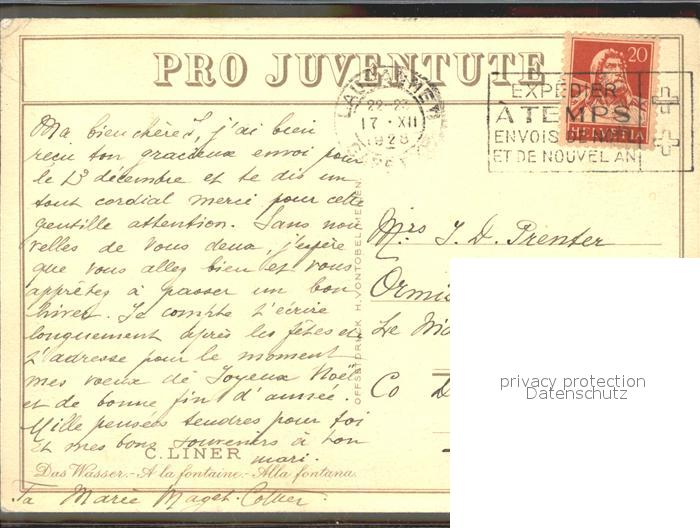 PRO JUVENTUTE
LAUSANNE
22-23
17 · XII
1928
EXPÉDIER
À TEMPS
ENVOIS DE NOËL
ET DE NOUVEL AN
20
HELVETIA
Ma bien chère S, j'ai bien
reçu ton gracieux envoi pour
le 13 décembre et te dis un
tout cordial merci pour cette
gentille attention. Sans nou
velles de vous deux, j'espère
que vous allez bien et vous
apprêtez à passer un bon
hiver. Je compte t'écrire
longuement après les fêtes et
t'adresse pour le moment
mes voeux de Joyeux Noël
et de bonne fin d'année.
Mille pensées tendres pour toi
et mes bons souvenirs à ton
mari.
Ta Marie Maget-
C. LINER
Das Wasser.-A la fontaine.-Alla fontana.
OFFSETDRUCK H. VONTOBEL, MEILEN
Mrs J. D. Prenter
Ormi
Le
Co D
privacy protection
Datenschutz